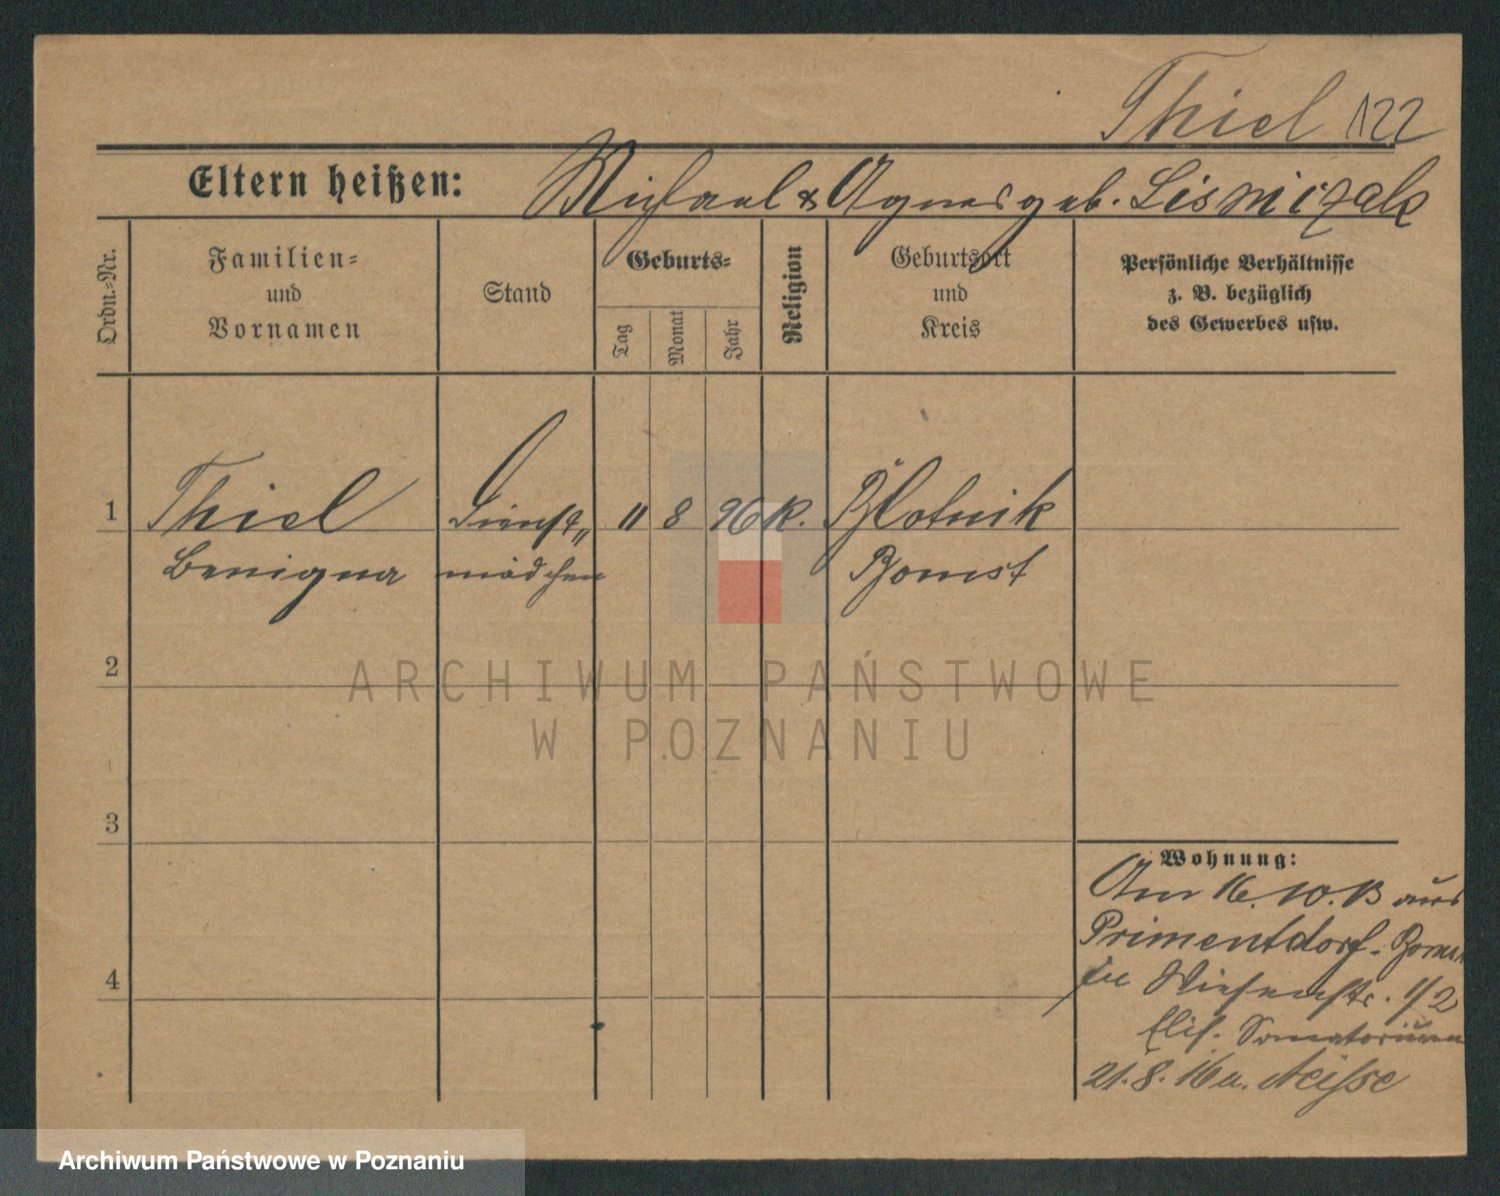 Thiel 122
Eltern heißen: Michael & Agnes geb. Lisniczak
Ordn.-Nr.
Familien-
und
Vornamen
Stand
Geburts-
Tag
Monat
Jahr
Religion
Geburtsort
und
Kreis
Persönliche Verhältnisse
z. B. bezüglich
des Gewerbes usw.
1 Thiel Dienst„ 11 8 96 K. Blotnik
Benigna mädchen Bomst
2
3
4
Wohnung:
Am 16. 10. 13 aus
Primentdorf - Bomst
in Wiesenstr. 1/2
Elis. Sanatorium
21. 8. 16 n. Neisse
ARCHIWUM PAŃSTWOWE
W POZNANIU
Archiwum Państwowe w Poznaniu